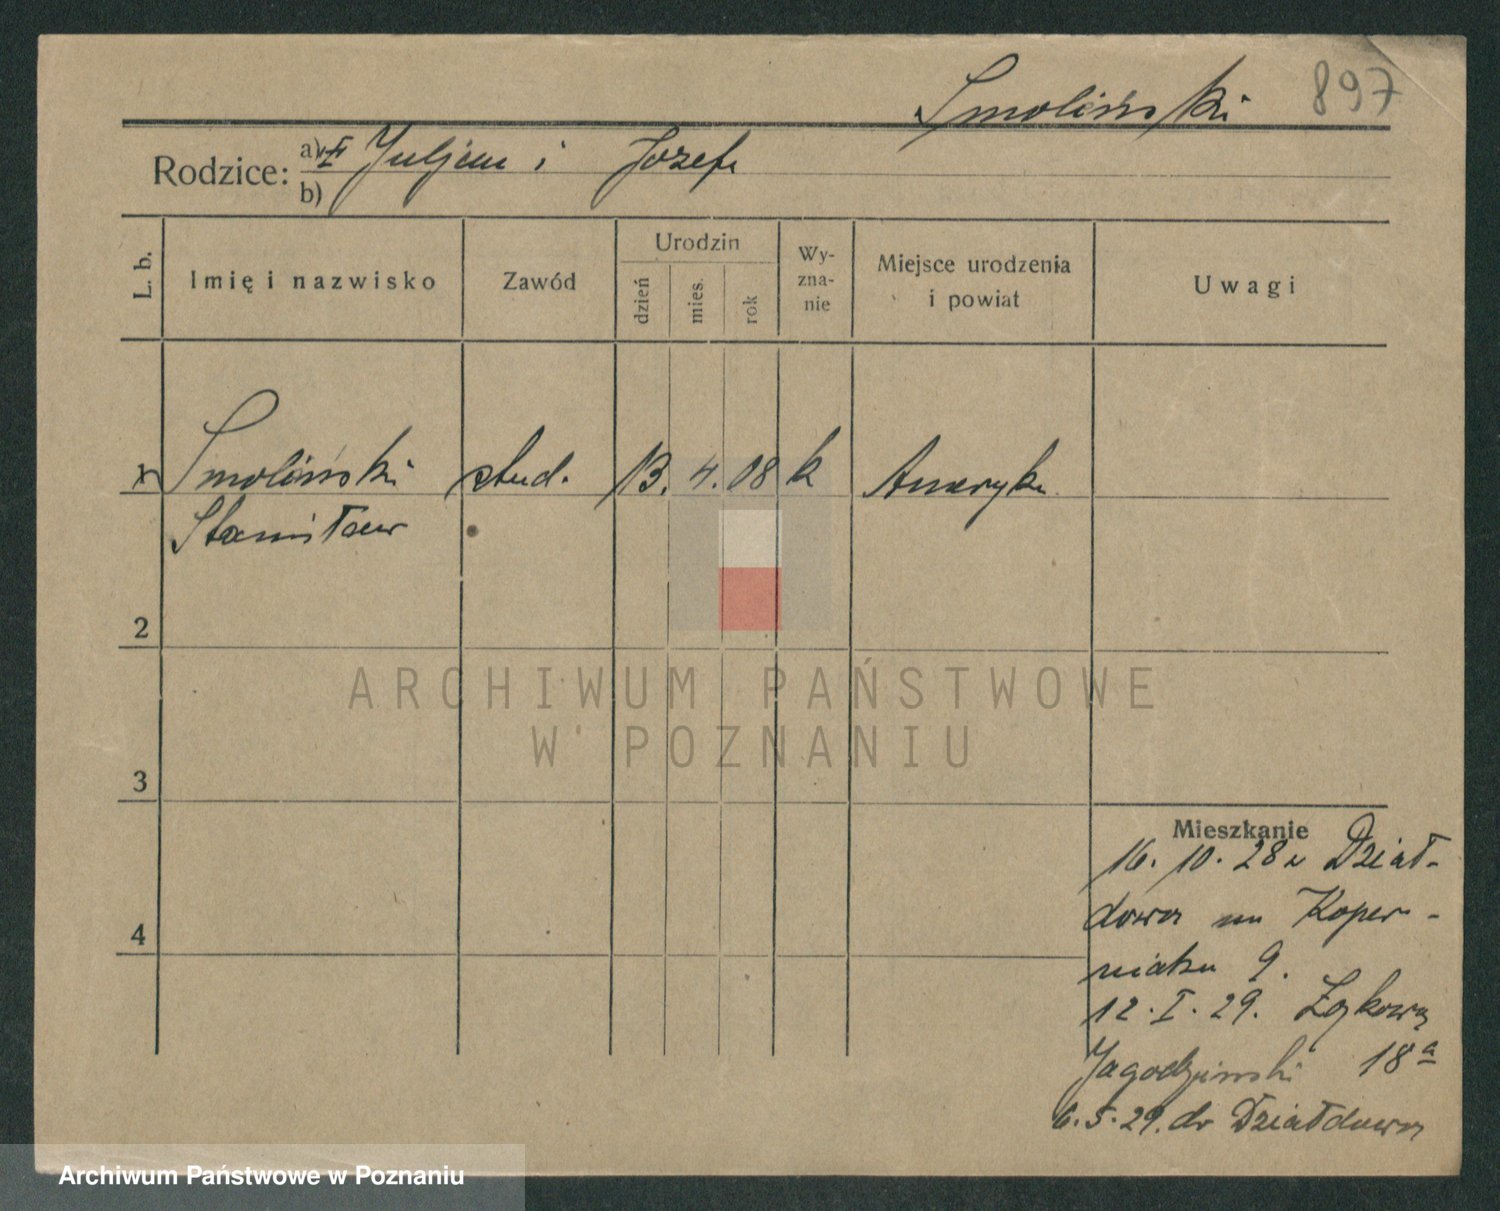 Smoliński 897
Rodzice: a) Juljan i Józefa
b)
L. b. Imię i nazwisko Zawód Urodzin dzień mies. rok Wy-zna-nie Miejsce urodzenia i powiat Uwagi
Smoliński stud. 13. 4. 08 k Ameryka
Stanisław
2
ARCHIWUM PAŃSTWOWE
W POZNANIU
3
Mieszkanie
16. 10. 28 z Dział-
dowa na Koper-
nika 9.
4
12. I. 29. Łąkowa
Jagodziński 18a
6. 5. 29. do Działdowa
Archiwum Państwowe w Poznaniu